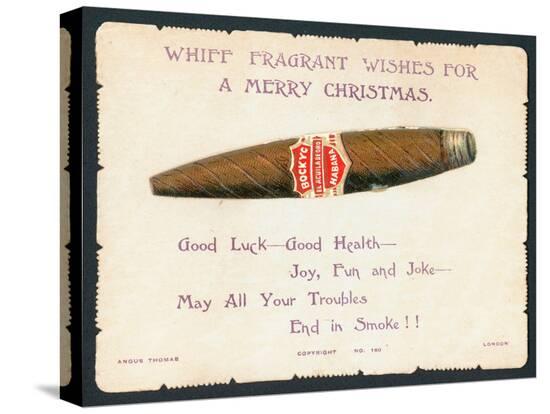 WHIFF FRAGRANT WISHES FOR
A MERRY CHRISTMAS.
BOCK Y Cº
EL AGUILA DE ORO
HABANA
Good Luck—Good Health—
Joy, Fun and Joke—
May All Your Troubles
End in Smoke!!
ANGUS THOMAS
COPYRIGHT NO. 160
LONDON